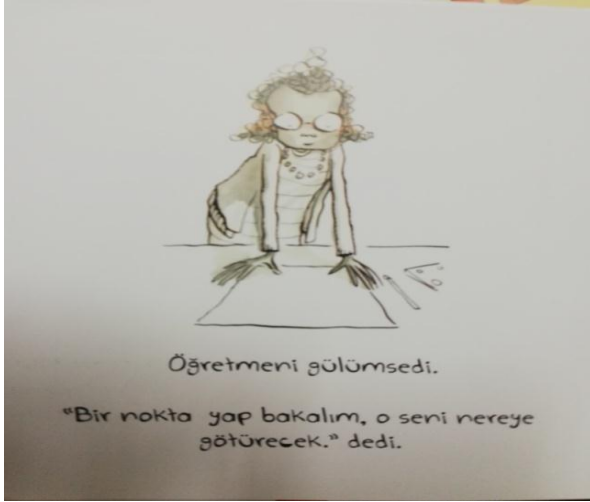 Öğretmeni gülümsedi.
"Bir nokta yap bakalım, o seni nereye
götürecek." dedi.